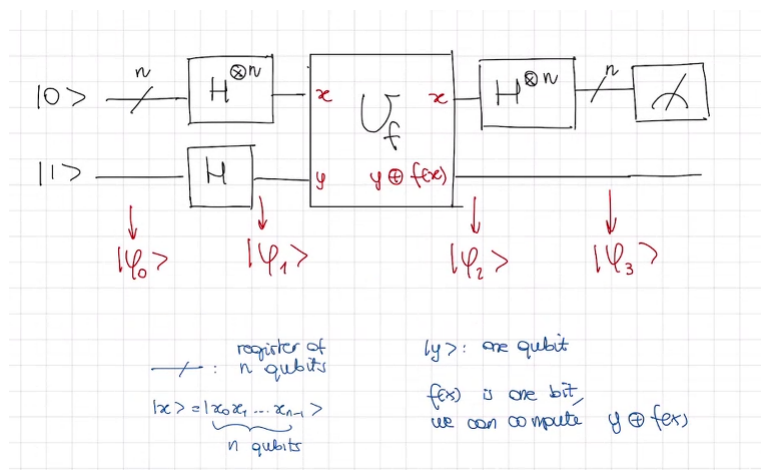 n n
|0> H⊗n x U_f x H⊗n
|1> H y y ⊕ f(x)
|φ₀> |φ₁> |φ₂> |φ₃>
register of
: n qubits
|x> = |x₀x₁ ... xₙ₋₁>
n qubits
|y> : one qubit
f(x) is one bit,
we can compute y ⊕ f(x)